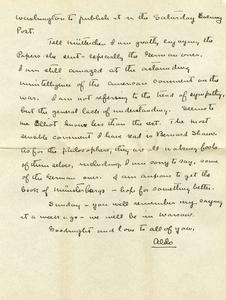 Washington to publish it in the Saturday Evening
Post.
Tell Mütterchen I am greatly enjoying the
Papers she sent - especially the German ones.
I am still amazed at the astounding
unintelligence of the American comment on the
war. I am not referring to the trend of sympathy,
but the general lack of understanding. Seems to
me Elliot knows less than the rest. The most
sensible comment I have read is Bernard Shaw's.
As for the philosophers, they are all making fools
of themselves, including, I am sorry to say, some
of the German ones. I am anxious to get the
book of Münsterbergs - hope for something better.
Sunday - you will remember my saying
it a week ago - we will be in Warsaw.
Goodnight and love to all of you,
Aldo